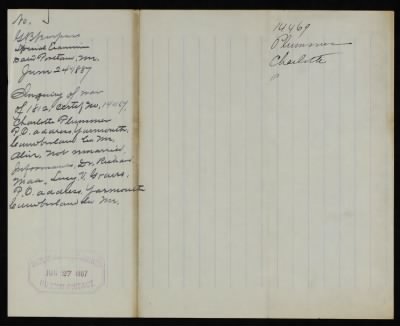 No. 5
Special Examiner
June 24 1887
Inquiry of war
of 1812, Certf No. 14469
Charlotte Plummer
P.O. address Yarmouth
Cumberland Co Me.
Alive, not remarried
Informants, Dr. 
Lucy V. Groves,
P.O. address Yarmouth
Cumberland Co Me.
JUN 27 1887
14469
Plummer
Charlotte